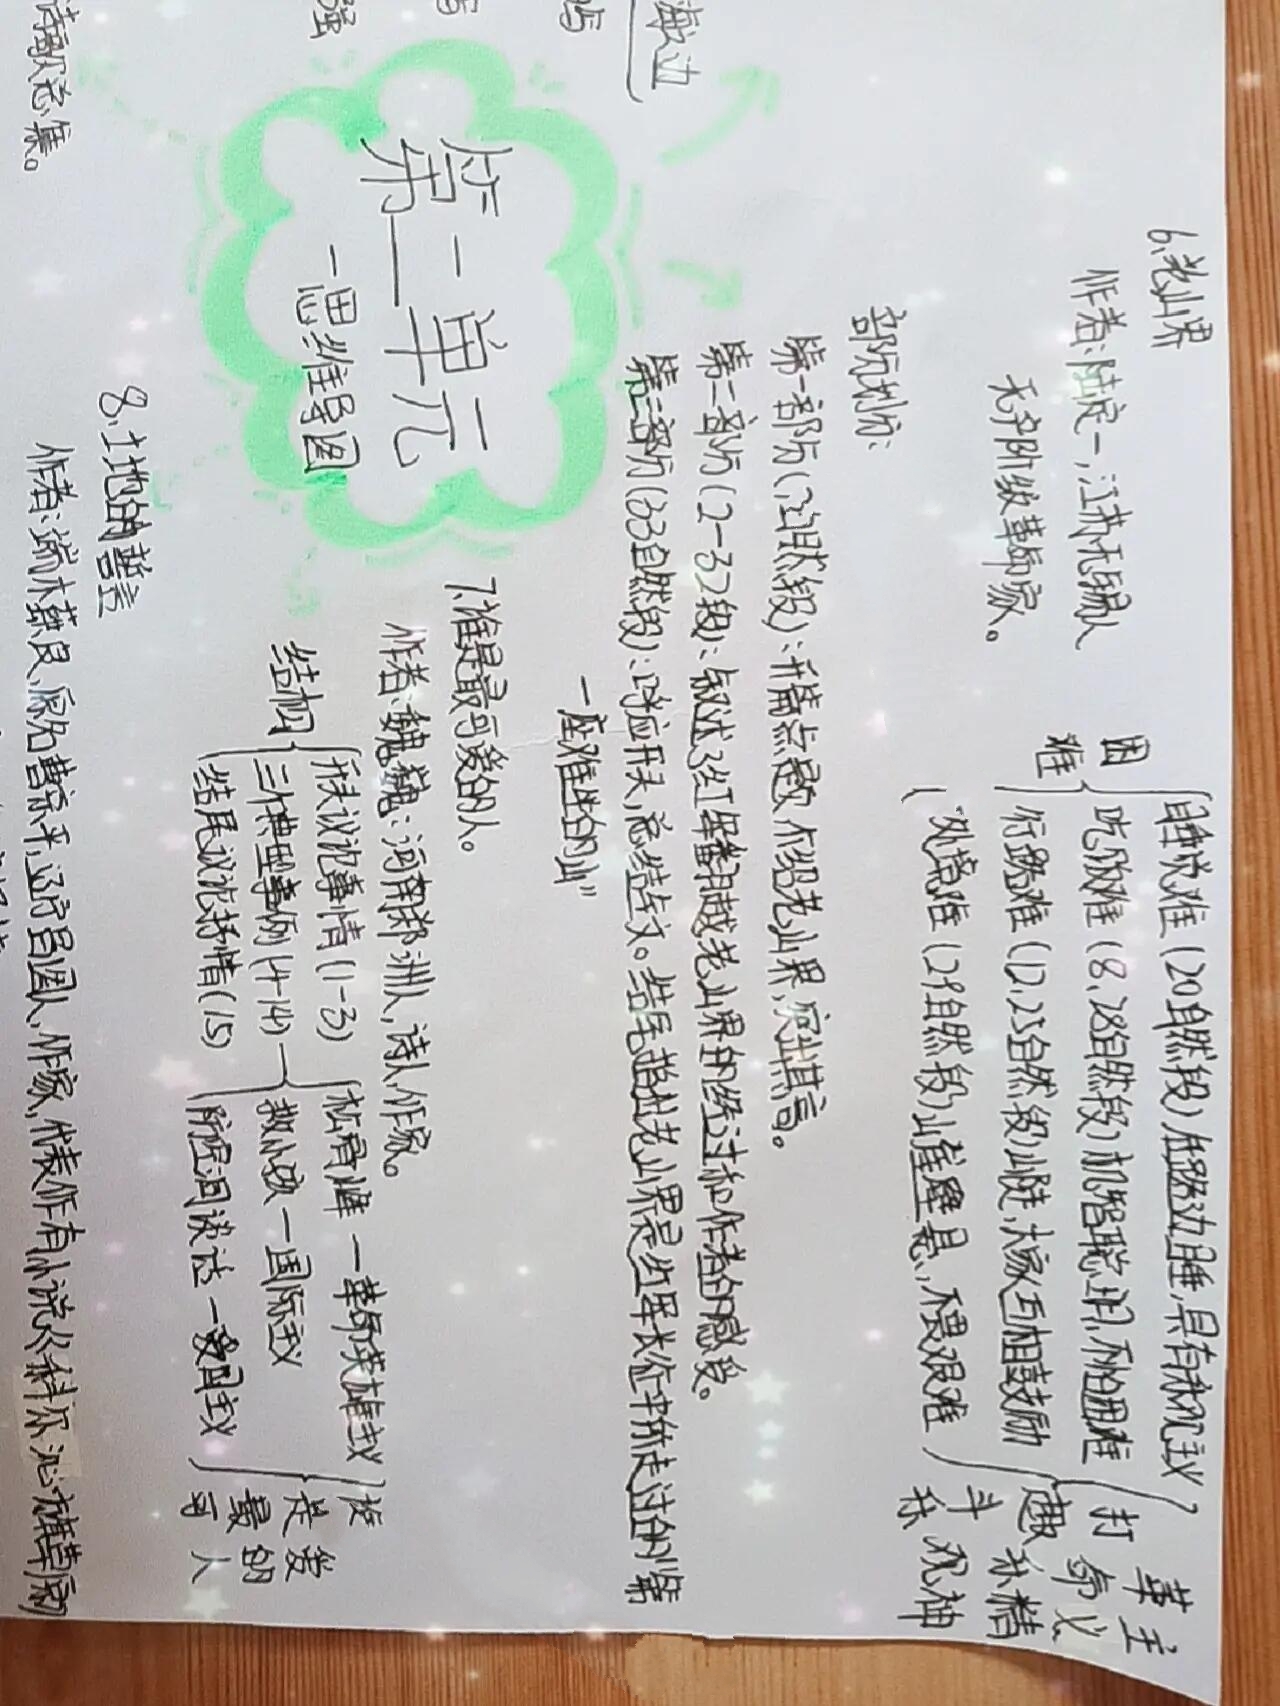 6、老山界
作者:陆定一,江苏无锡人
无产阶级革命家。
困难
睡觉难(20自然段)在路边睡,具有乐观主义
吃饭难(8、28自然段)机智聪明,不怕困难
行路难(12、25自然段)山陡,大家互相鼓励
处境难(29自然段)山崖壁悬,不畏艰难
革命主义
乐观精神
部分划分:
第一部分(1自然段):开篇点题,介绍老山界,突出其高。
第二部分(2-32段):叙述了红军翻越老山界的经过和作者的感受。
第三部分(33自然段):呼应开头,总结全文。结尾指出老山界是红军长征中所走过的第
一座难走的山"
第二单元
一思维导图
7、谁是最可爱的人。
作者:魏巍:河南郑洲人,诗人,作家。
结构
开头议论事情(1-3)
三个典型事例(4-14)
结尾议论抒情(15)
松骨峰一革命英雄主义
救小孩一国际主义
防空洞谈话一爱国主义
是最可爱的人
8、土地的誓言
作者:端木蕻良,原名曹京平,辽宁昌图人,作家,代表作有小说《科尔沁旗草原》
诗歌总集。